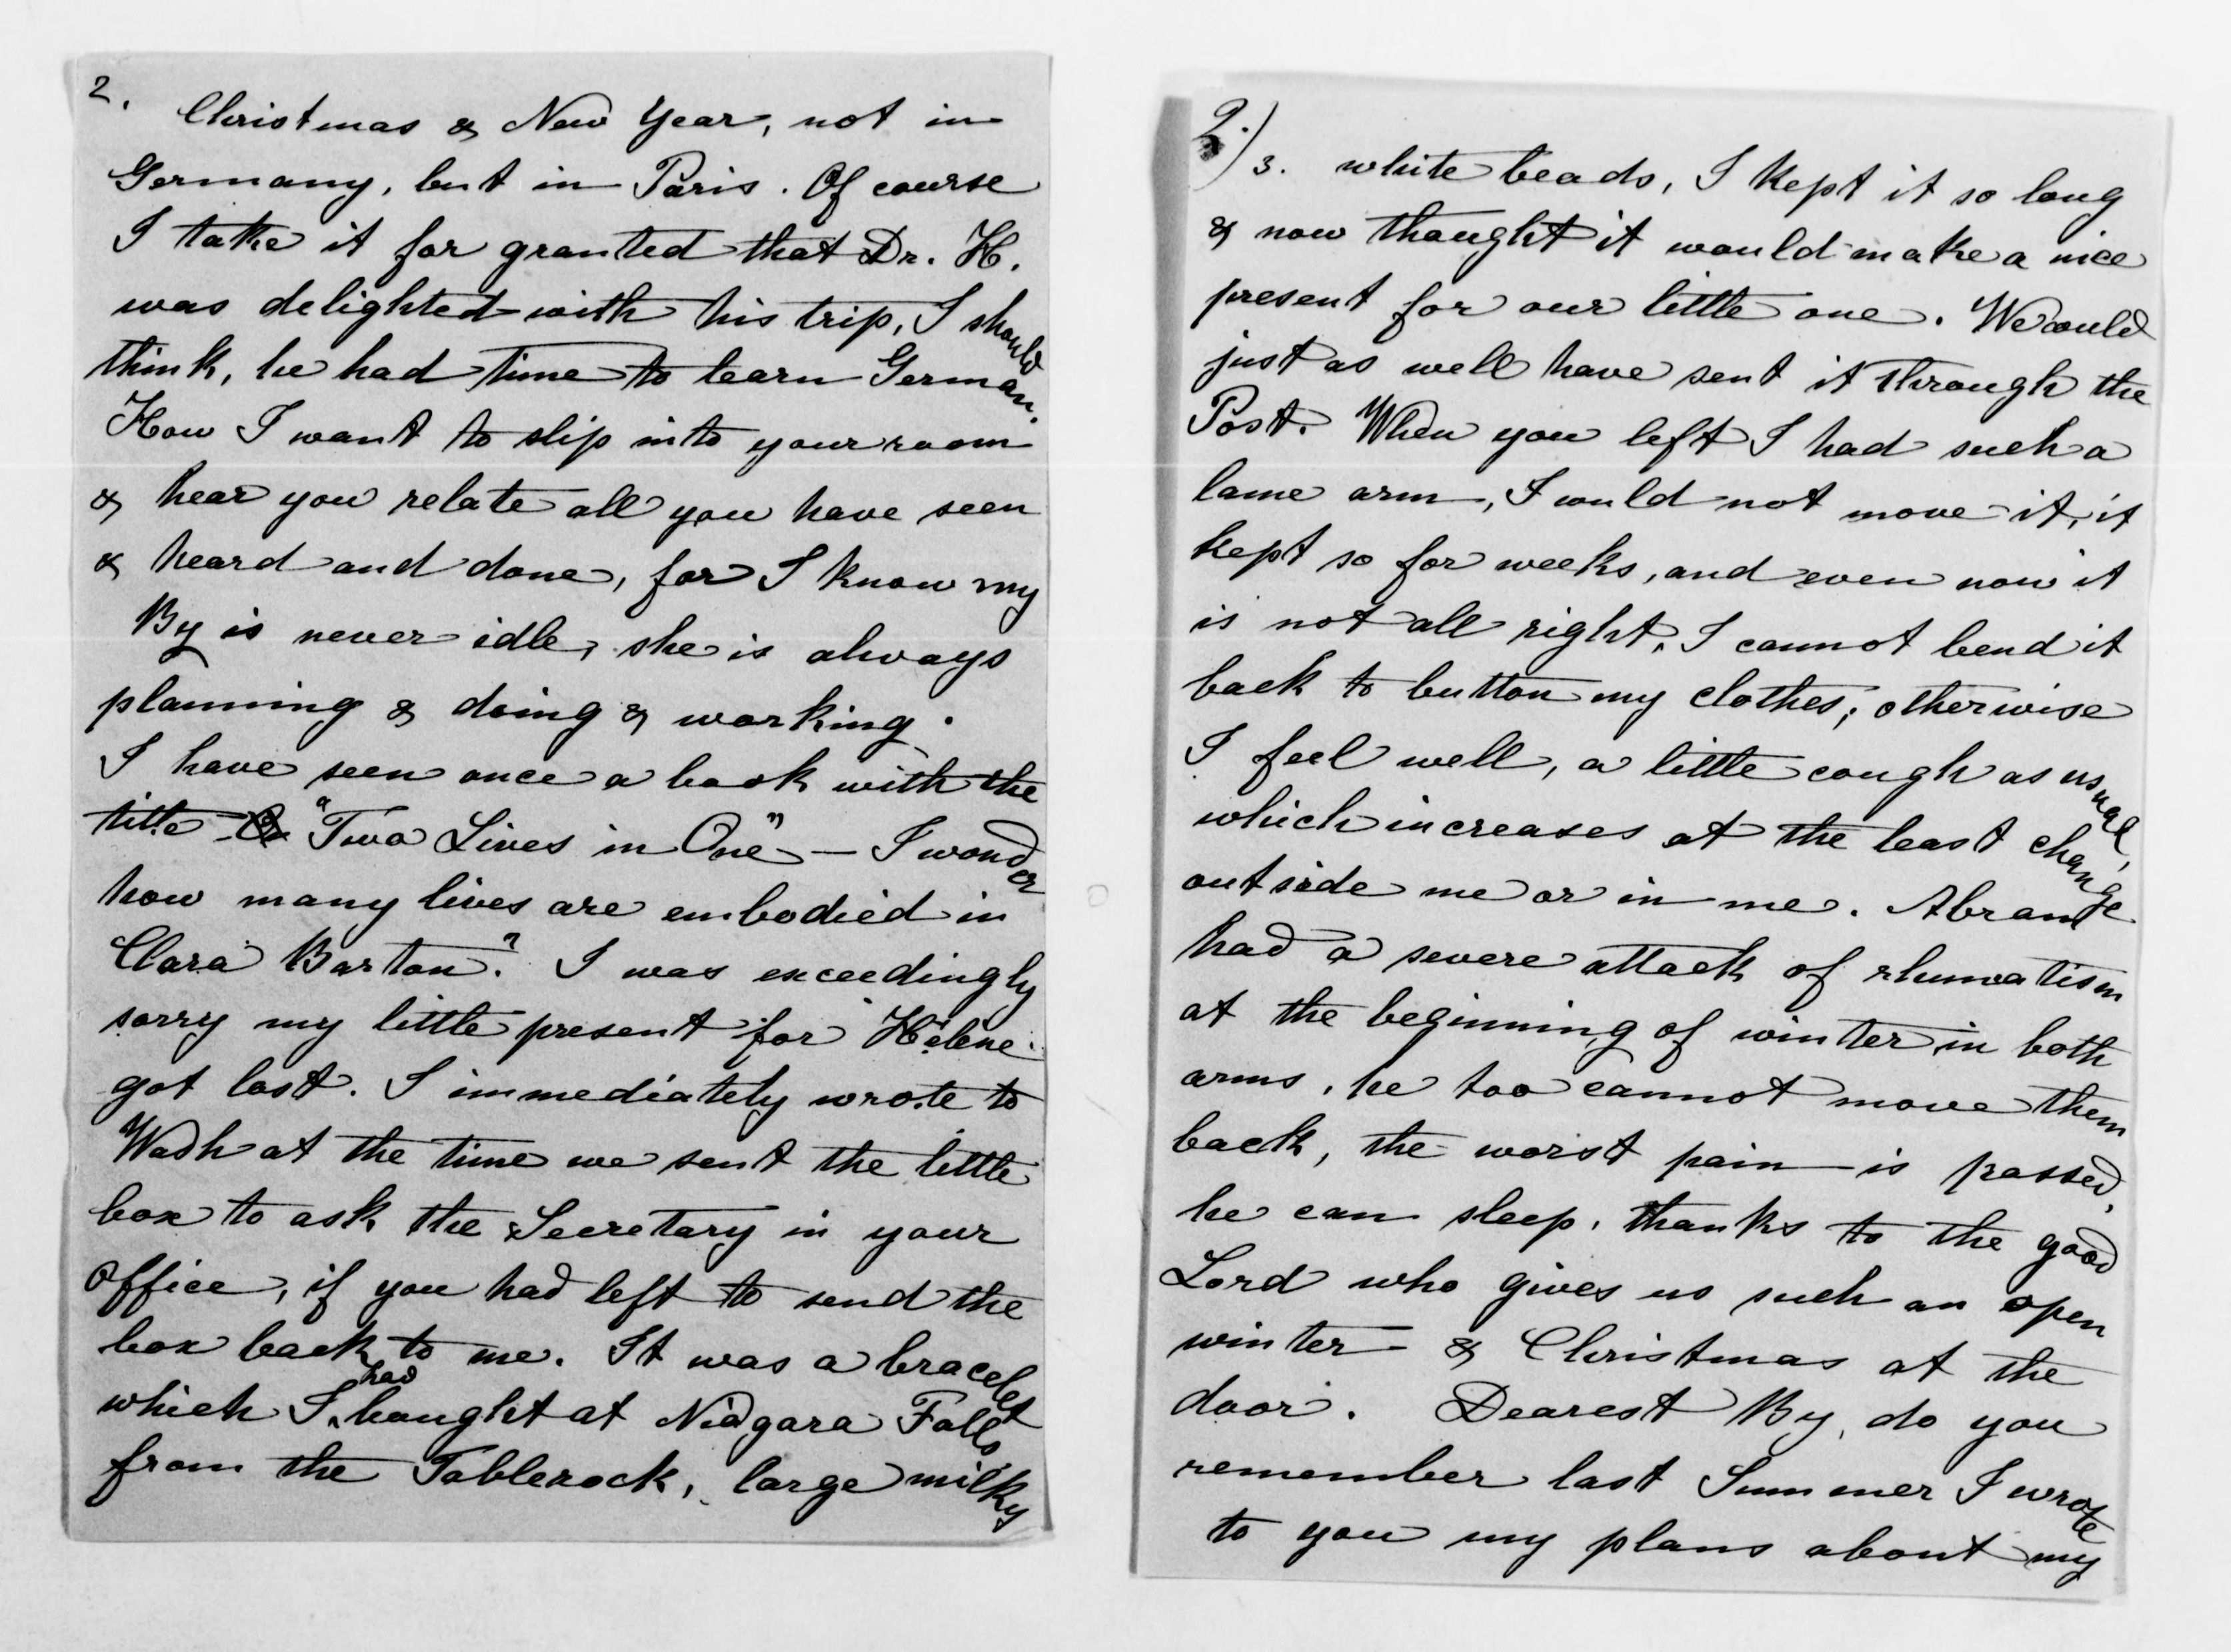 2. Christmas & New Year, not in
Germany, but in Paris. Of course
I take it for granted that Dr. H.
was delighted with his trip, I should
think, he had time to learn German.
How I want to slip into your room
& hear you relate all you have seen
& heard and done, for I know my
By is never idle, she is always
planning & doing & working.
I have seen once a book with the
title "Two Lives in One" — I wonder
how many lives are embodied in
Clara Barton"? I was exceedingly
sorry my little present for Hélène
got lost. I immediately wrote to
Wash at the time we sent the little
box to ask the Secretary in your
Office, if you had left to send the
box back to me. It was a bracelet
which I had bought at Niagara Falls
from the Tablerock, large milky
2.) 3. white beads, I kept it so long
& now thought it would make a nice
present for our little one. We could
just as well have sent it through the
Post. When you left I had such a
lame arm, I could not move it, it
kept so for weeks, and even now it
is not all right, I cannot bend it
back to button my clothes; otherwise
I feel well, a little cough as usual,
which increases at the least change
outside me or in me. Abram
had a severe attack of rhumatism
at the beginning of winter in both
arms, he too cannot move them
back, the worst pain is passed,
he can sleep, thanks to the good
Lord who gives us such an open
winter & Christmas at the
door. Dearest By, do you
remember last Summer I wrote
to you my plans about my